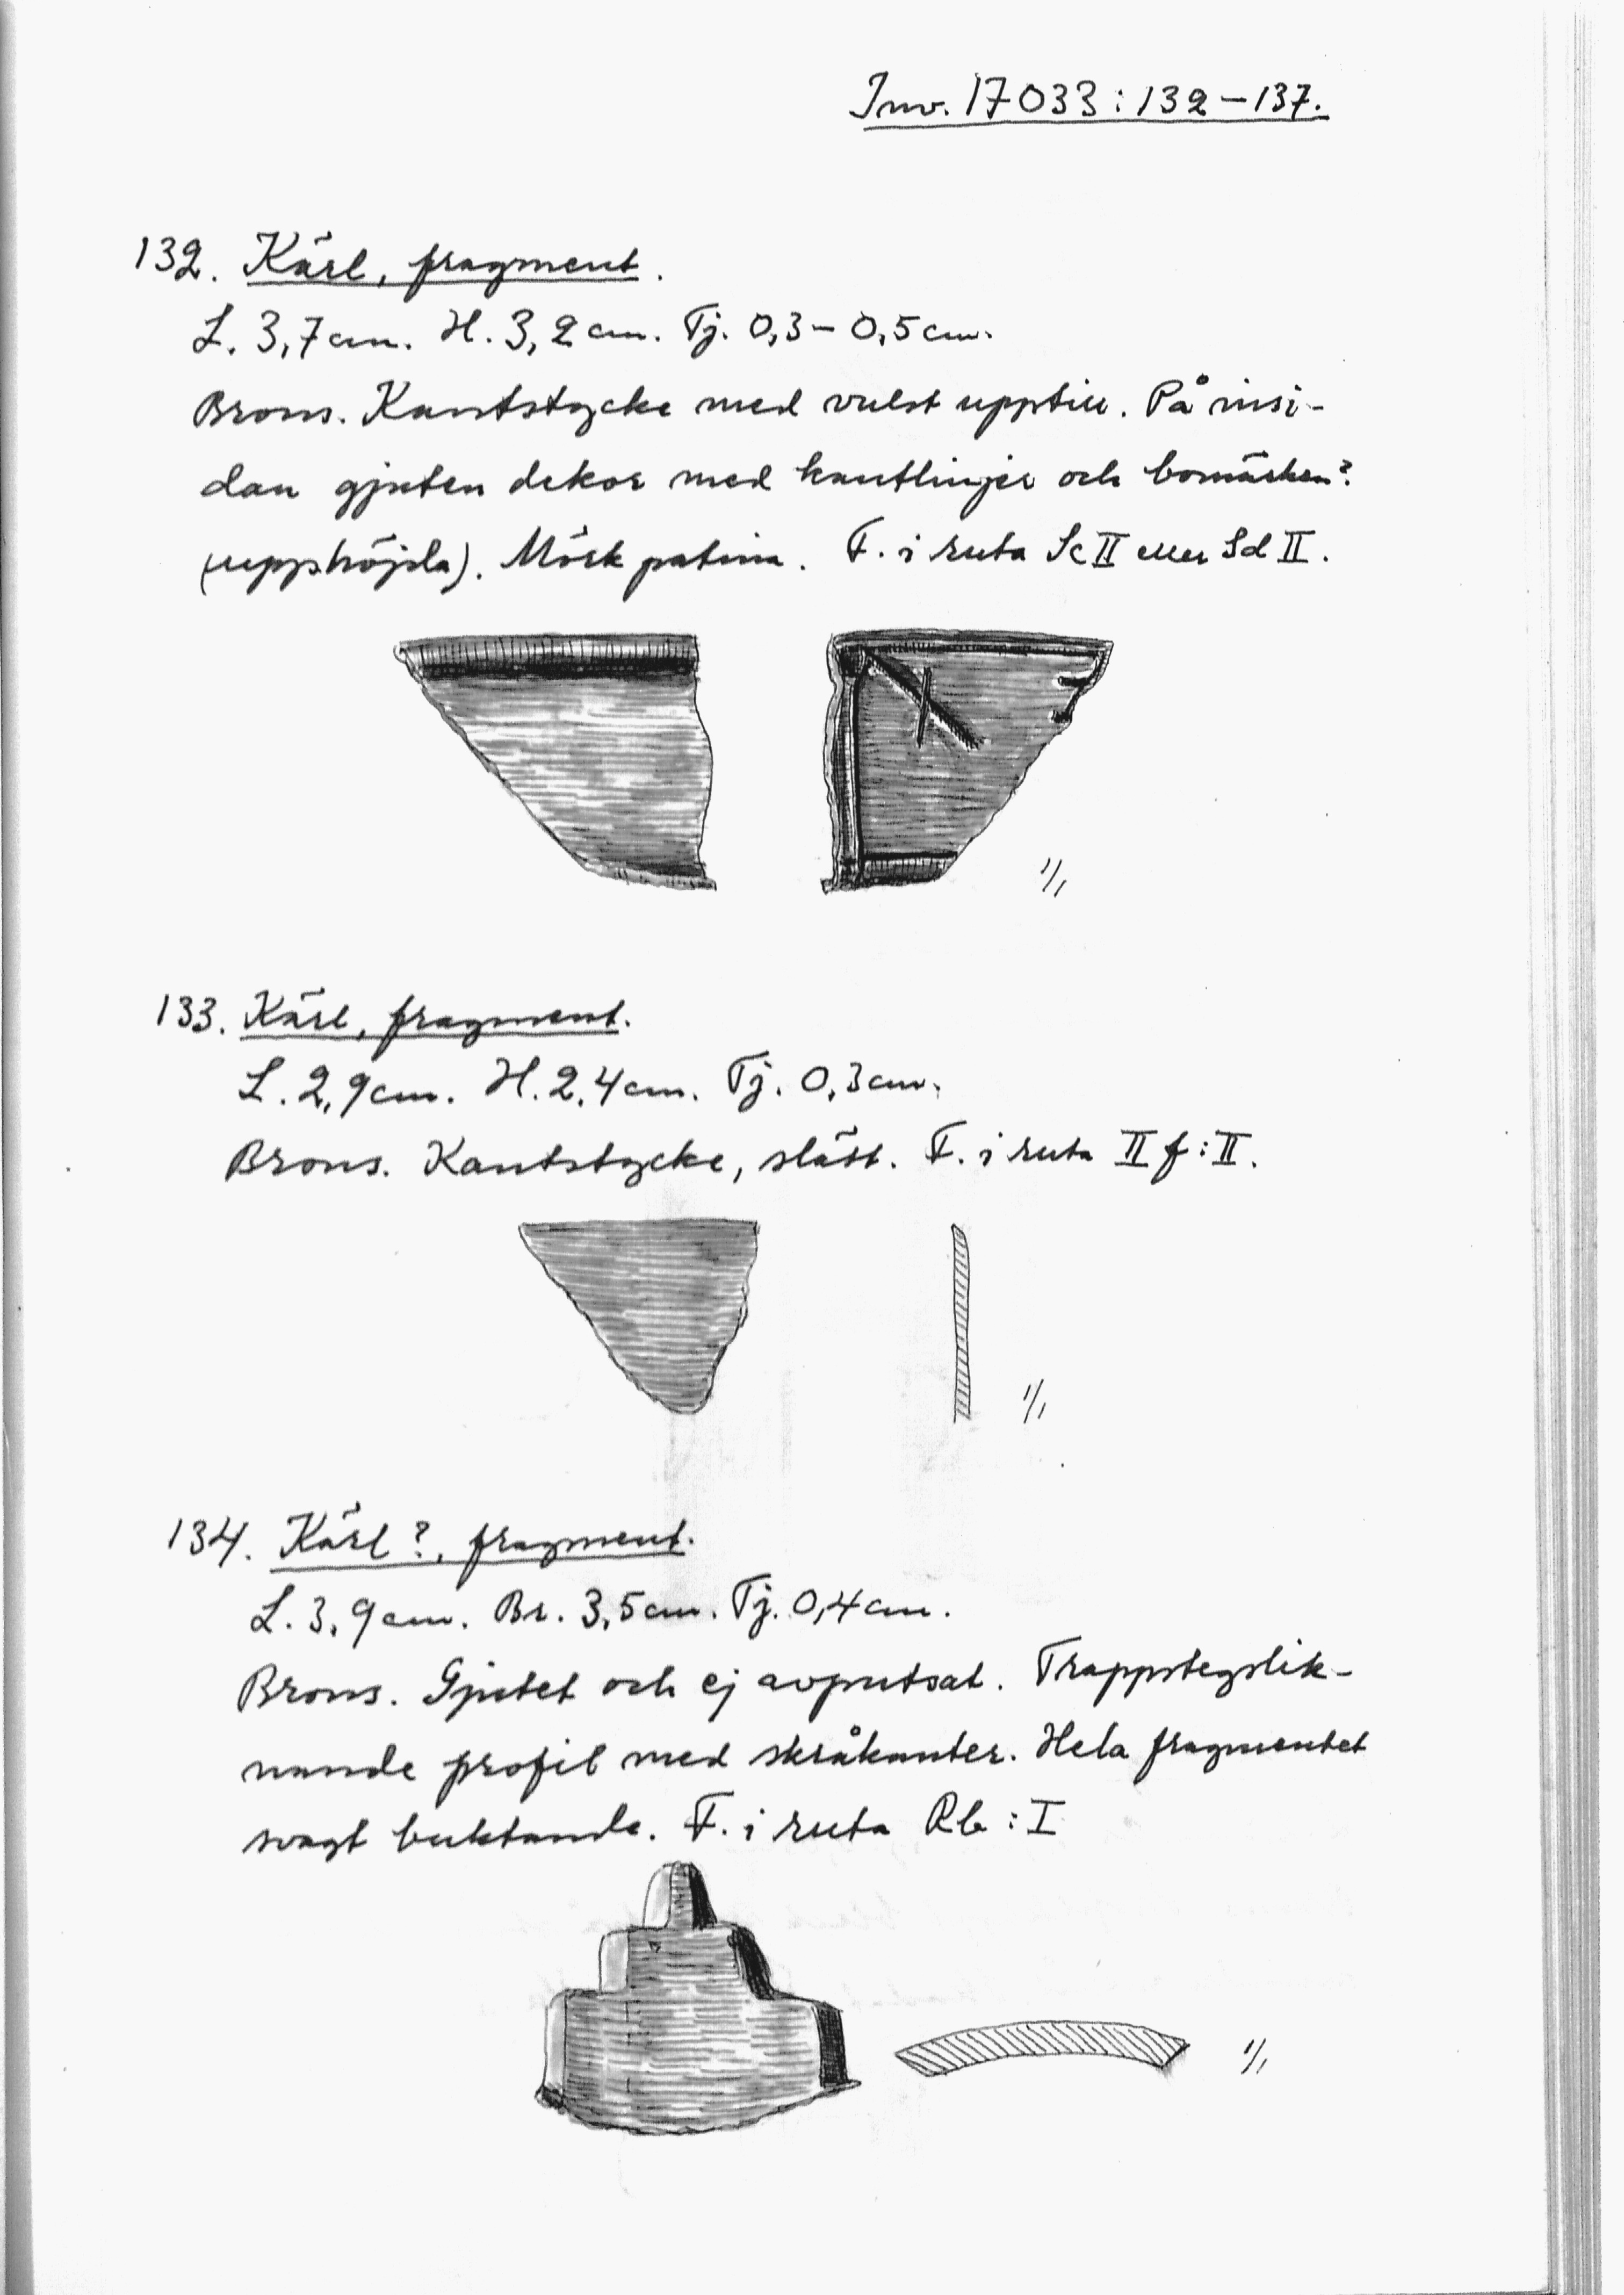 Inv. 17033:132–137.
132. Kärl, fragment.
L. 3,7 cm. H. 3,2 cm. Tj. 0,3–0,5 cm.
Brons. Kantstycke med vulst upptill. På insi-
dan gjuten dekor med kantlinjer och bomärken?
(upphöjda). Mörk patina. F. i ruta Sc II eller Sd II.
1/1
133. Kärl, fragment.
L. 2,9 cm. H. 2,4 cm. Tj. 0,3 cm.
Brons. Kantstycke, slätt. F. i ruta II f:II.
1/1
134. Kärl?, fragment.
L. 3,9 cm. Br. 3,5 cm. Tj. 0,4 cm.
Brons. Gjutet och ej avputsat. Trappstegslik-
nande profil med skråkanter. Hela fragmentet
svagt buktande. F. i ruta Rb:I
1/1